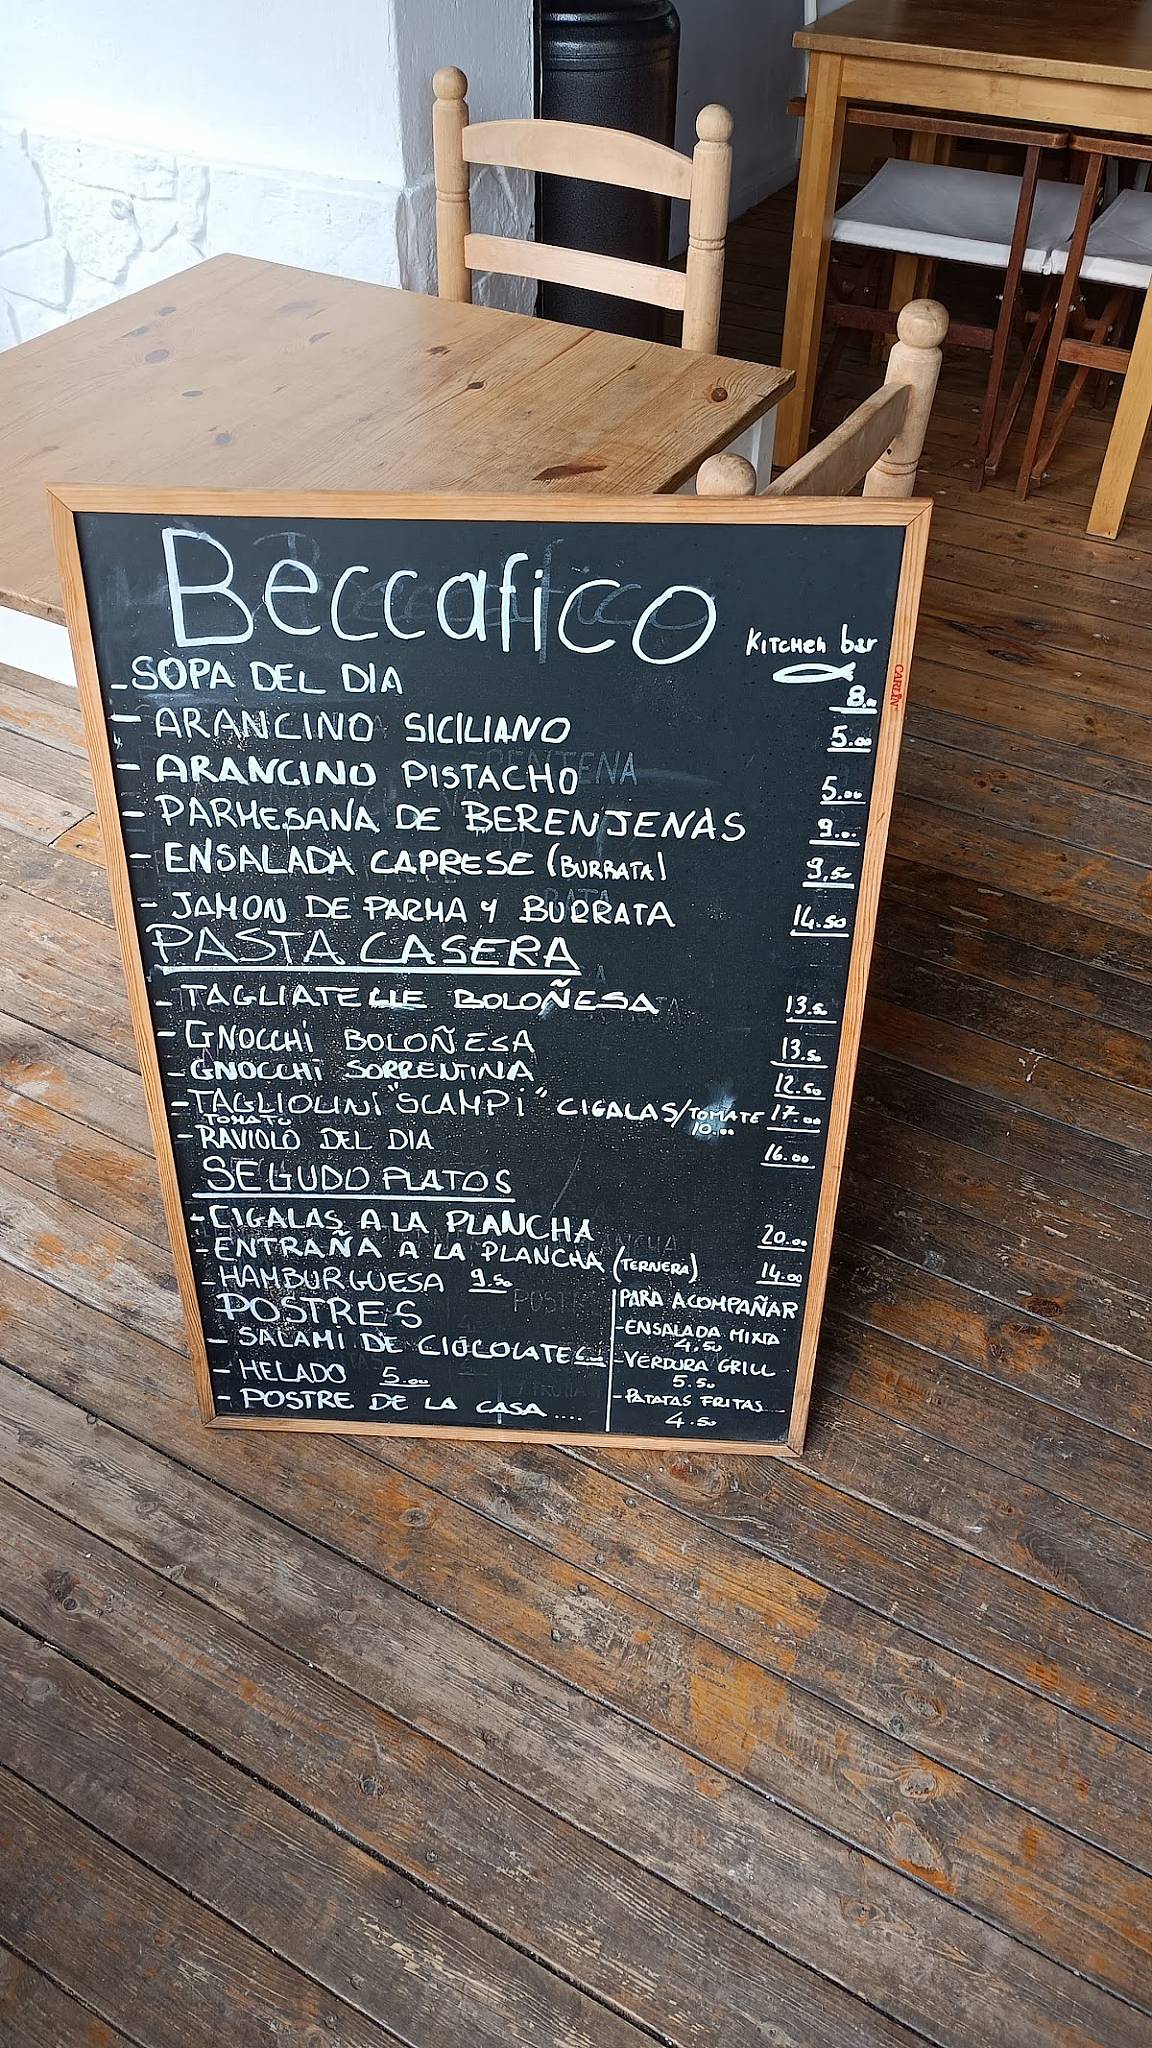 Beccafico
KITCHEN bar
- SOPA DEL DIA 8.00
- ARANCINO SICILIANO 5.00
- ARANCINO PISTACHO 5.00
- PARMESANA DE BERENJENAS 9...
- ENSALADA CAPRESE (BURRATA) 9,50
- JAMON DE PARMA Y BURRATA 14.50
PASTA CASERA
- TAGLIATELLE BOLOÑESA 13.50
- GNOCCHI BOLOÑESA 13.50
- GNOCCHI SORRENTINA 12.50
- TAGLIOLINI "SCAMPI" CIGALAS/TOMATE 17.00
TOMATO 10.00
- RAVIOLO DEL DIA 16.00
SEGUDO PLATOS
- CIGALAS A LA PLANCHA 20.00
- ENTRAÑA A LA PLANCHA (TERNERA) 14.00
- HAMBURGUESA 9.50
POSTRES
- SALAMI DE CIOCOLATE 6.00
- HELADO 5.00
- POSTRE DE LA CASA ....
PARA ACOMPAÑAR
- ENSALADA MIXTA
4,50
- VERDURA GRILL
5.50
- PATATAS FRITAS
4.50